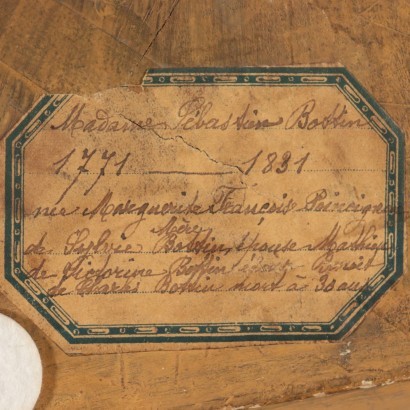 Madame Sébastien Bottin
1771 — 1831
née Marguerite François
Mère
de Sylvie Bottin, épouse Mathieu
de Victorine Bottin
de Charles Bottin mort à 30 ans